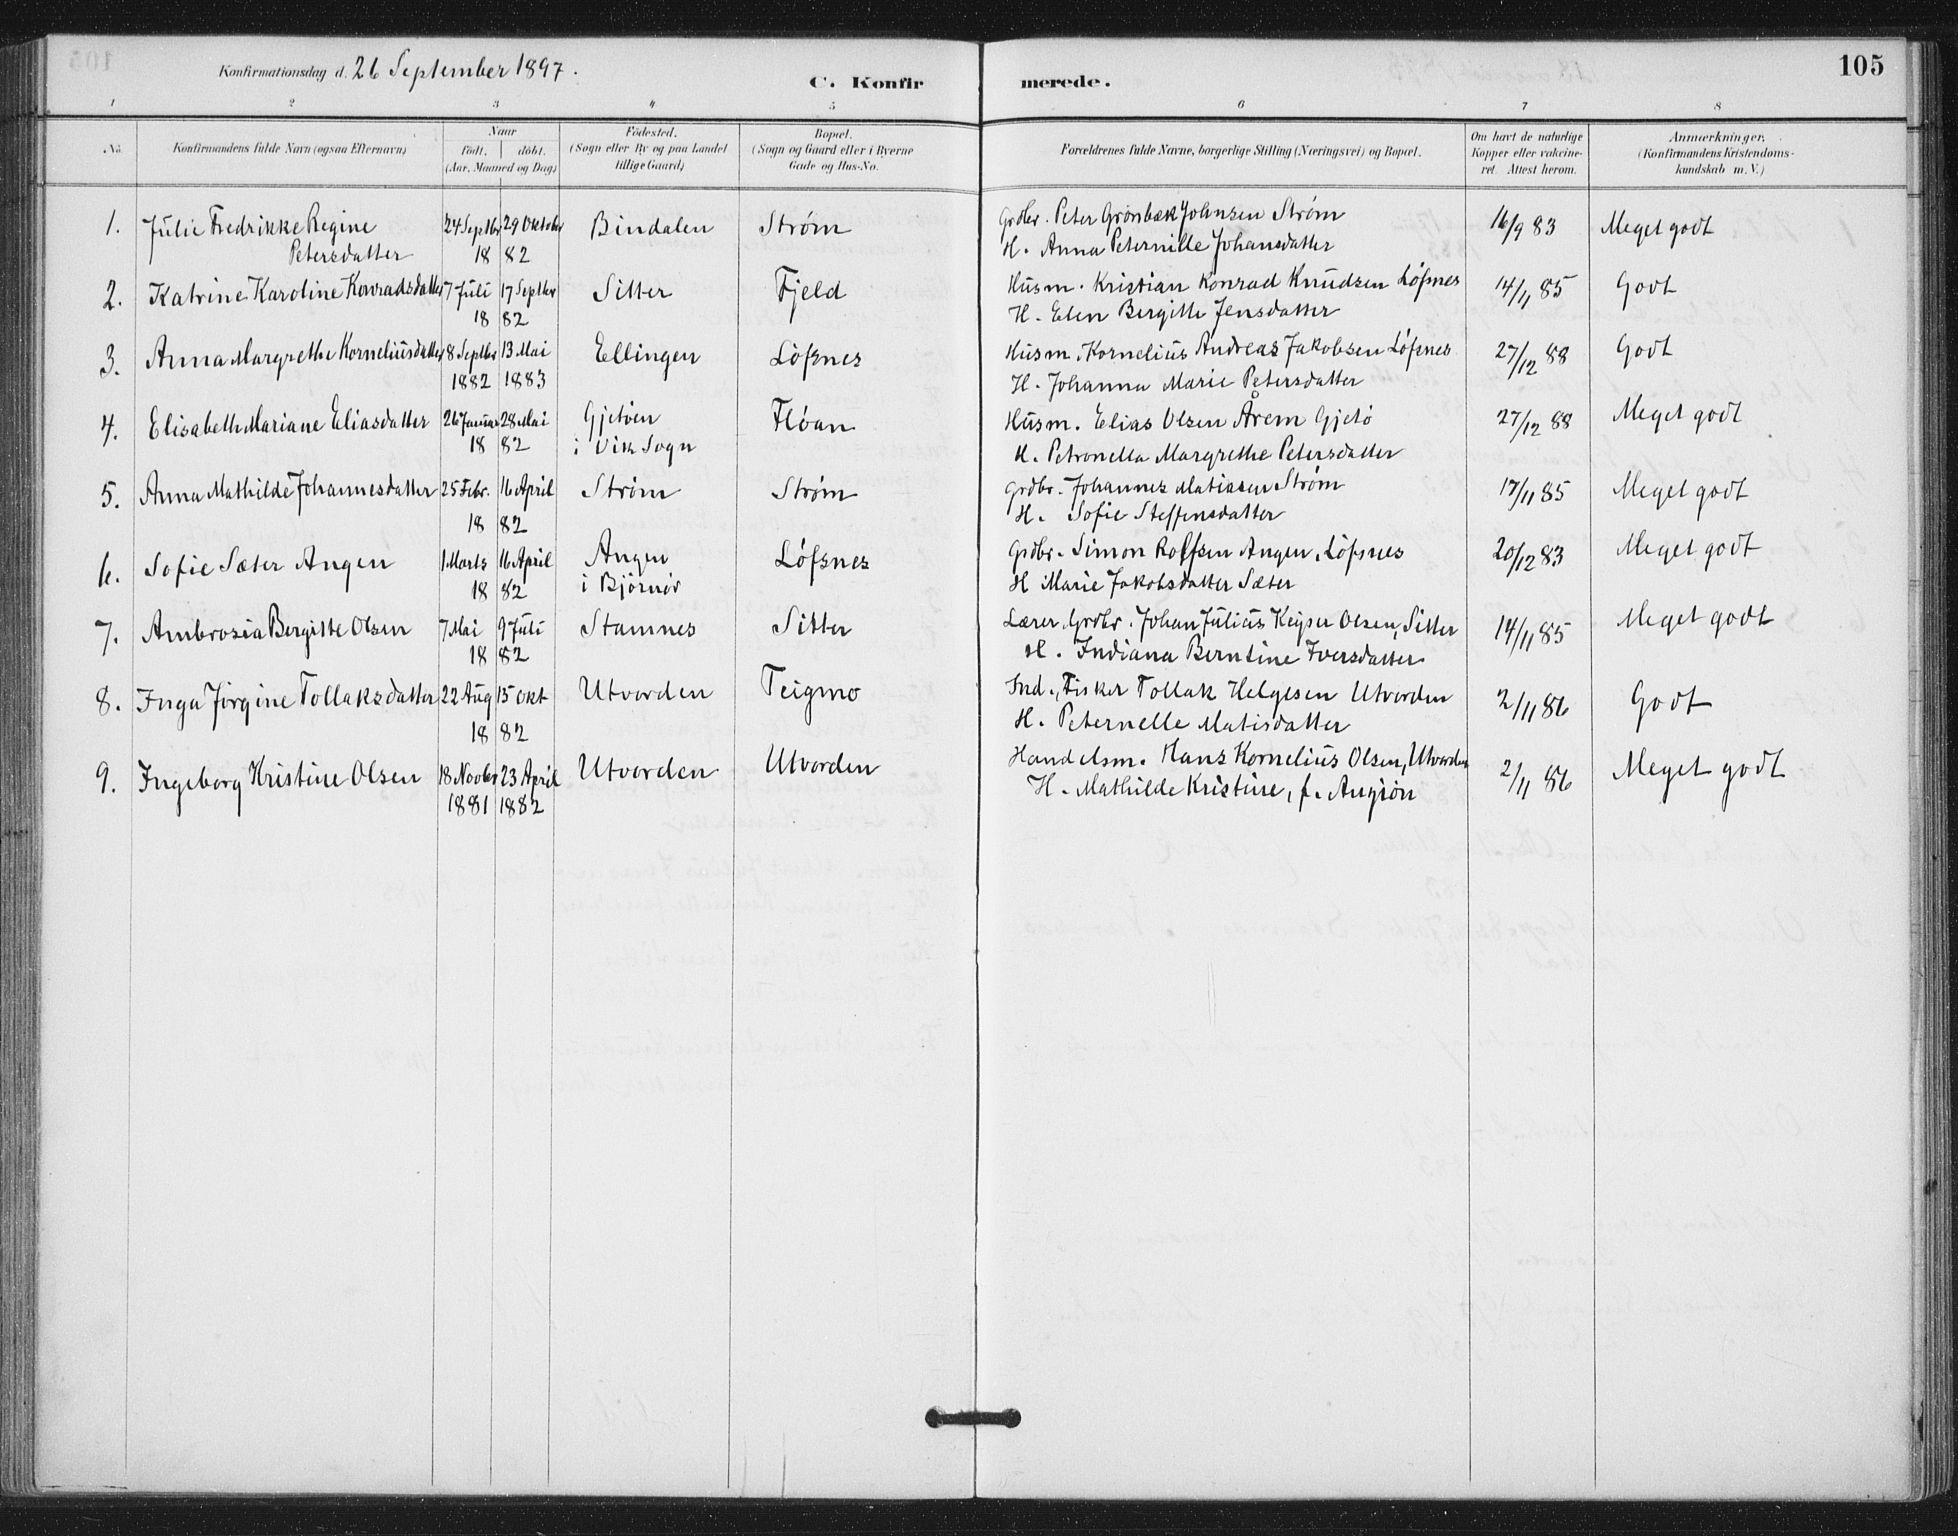 Konfirmationsdag d. 26 September 1897.
C. Konfirmerede.
105
1 2 3 4 5 6 7 8
No.
Konfirmandens fulde Navn (ogsaa Efternavn)
Naar
født, døbt.
(Aar, Maaned og Dag)
Fødested.
(Sogn eller By og paa Landet
tillige Gaard)
Bopæl.
(Sogn og Gaard eller i Byerne
Gade og Hus-No.
Forældrenes fulde Navne, borgerlige Stilling (Næringsvei) og Bopæl.
Om havt de naturlige
Kopper eller vakcine-
ret. Attest herom.
Anmærkninger.
(Konfirmandens Kristendoms-
kundskab m. V.)
1. Julie Fredrikke Regine 24 Septbr 29 Oktober Bindalen Strøm Grdbr. Peter Grønbæk Johnsen Strøm 16/9 83 Meget godt
Petersdatter 18 82 H. Anna Peternille Johansdatter
2. Katrine Karoline Konradsdatter 7 Juli 17 Septbr Sitter Fjeld Husm. Kristian Konrad Knudsen Løfsnes 14/11 85 Godt
18 82 H. Elen Bergitte Jensdatter
3. Anna Margrethe Korneliusdatter 8 Septbr 13 Mai Ellingen Løfsnes Husm. Kornelius Andreas Jakobsen Løfsnes 27/12 88 Godt
1882 1883 H. Johanna Marie Petersdatter
4. Elisabeth Mariane Eliasdatter 26 Januar 28 Mai Gjetøen Fløan Husm. Elias Olsen Årem Gjetø 27/12 88 Meget godt
18 82 i Vik Sogn H. Petronella Margrethe Petersdatter
5. Anna Mathilde Johannesdatter 25 Febr. 16 April Strøm Strøm Grdbr. Johannes Matiasen Strøm 17/11 85 Meget godt
18 82 H. Sofie Steffensdatter
6. Sofie Sæter Angen 1 Marts 16 April Angen Løfsnes Grdbr. Simon Rolfsen Angen, Løfsnes 20/12 83 Meget godt
18 82 i Bjørnør H Marie Jakobsdatter Sæter
7. Ambrosia Bergitte Olsen 7 Mai 9 Juli Stamnes Sitter Lærer, Grdbr. Johan Julius Keyser Olsen, Sitter 14/11 85 Meget godt
18 82 H. Indiana Berntine Iversdatter
8. Inga Jørgine Tollaksdatter 22 Aug 15 Okt Utvorden Teigmo Ind., Fisker Tollak Helgesen Utvorden 2/11 86 Godt
18 82 H. Peternelle Matisdatter
9. Ingeborg Kristine Olsen 18 Novbr 23 April Utvorden Utvorden Handelsm. Hans Kornelius Olsen, Utvorden 2/11 86 Meget godt
1881 1882 H. Mathilde Kristine, f. Angiøn